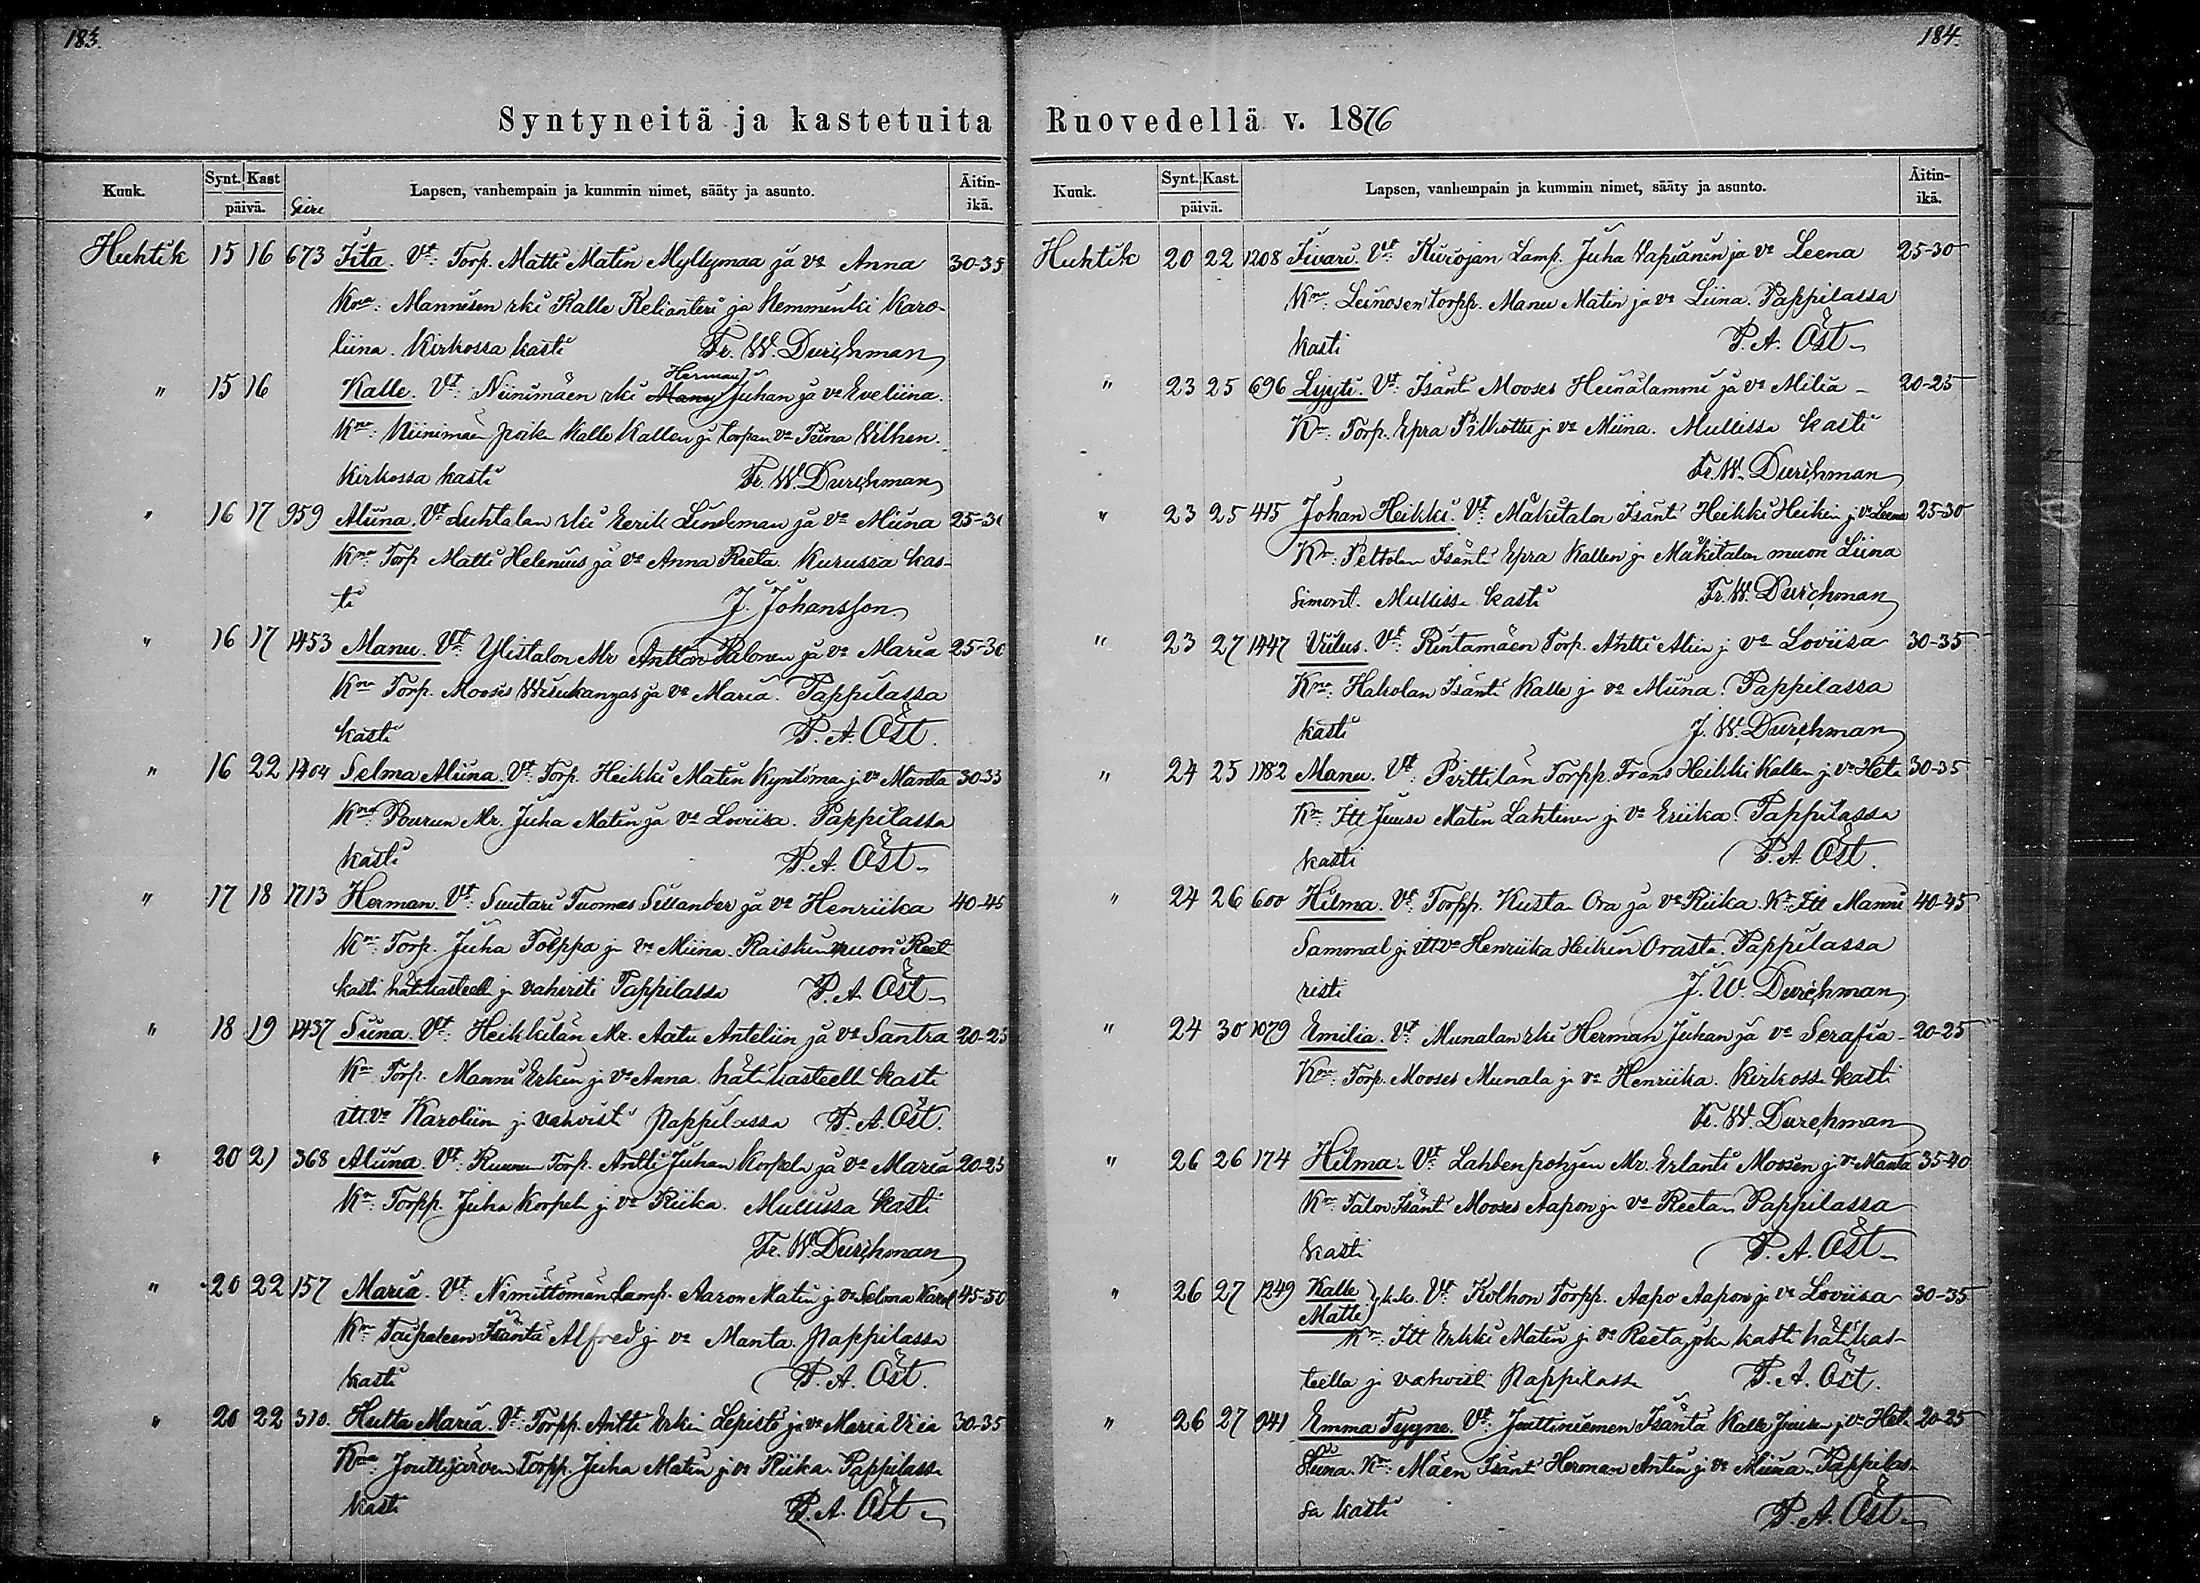 183.
Syntyneitä ja kastetuita
Kuuk. Synt. Kast päivä. Lapsen, vanhempain ja kummin nimet, sääty ja asunto. Äitin-ikä.
Huhtik 15 16 673 Iita. Vt: Torp. Matti Matin Myllymaa ja va Anna 30-35
Kna: Mannisen rki Kalle Kelianteri ja Hemminki Karo-
liina. Kirkossa kasti Fr. W. Durchman
Herman
" 15 16 Kalle. Vt: Niinimäen rki Manu Juhan ja va Eveliina.
Kna: Niinimäen poika Kalle Kallen ja torpan va Tiina Vilhen.
Kirkossa kasti Fr. W. Durchman
" 16 17 959 Aliina. Vt Luhtalan rki Eerik Lindeman ja va Miina 25-30
Kna Torp Matti Helenius ja va Anna Reeta. Kurussa kas-
ti J. Johansson
" 16 17 1453 Manu. Vt: Ylistalon Mr Anttoo Palonen ja va Maria 25-30
Kna Torp. Mooses Wisukangas ja va Maria. Pappilassa
kasti P. A. Öst.
" 16 22 1404 Selma Aliina. Vt: Torp. Heikki Matin Kyntömaa j. va Manta 30-33
Kna: Pourun Mr. Juha Matin ja va Loviisa. Pappilassa
kasti P. A. Öst
" 17 18 1713 Herman. Vt: Suutari Tuomas Sillander ja va Henriika 40-45
Kna: Torp. Juha Tolppa j. va Miina. Raiskin muori Reet
kasti hätäkasteell j. vahvisti Pappilassa P. A. Öst
" 18 19 1437 Siina. Vt: Heikkilän Mr. Aatu Anteliin ja va Santra 20-25
Kna: Torp. Manni Erkin j. va Anna. hätäkasteell kasti
itt. va Karoliin j. vahvisti Pappilassa P. A. Öst.
" 20 21 368 Aliina. Vt: Ruunan Torp. Antti Juhan Korpela ja va Maria 20-25
Kna: Torpp. Juha Korpela j. va Riika. Mullissa kasti
Fr. W. Durchman
" 20 22 157 Maria. Vt: Nimittömän Lamp. Aaron Matin j. va Selma Karol 45-50
Kna Taipaleen Isäntä Alfred j. va Manta. Pappilassa
kasti P. A. Öst.
" 20 22 310. Hulta Maria. Vt: Torpp. Antti Erkin Lepistö j. va Maria Viia 30-35
Kna: Jouttijärven Torpp. Juha Matin j. va Riika. Pappilassa
kasti P. A. Öst
184.
Ruovedellä v. 1876
Kuuk. Synt. Kast. päivä. Lapsen, vanhempain ja kummin nimet, sääty ja asunto. Äitin-ikä.
Huhtik 20 22 1208 Iivari. Vt: Kurojan Lamp. Juha Vapianen ja va Leena 25-30
Kna: Leinosen torpp. Manu Matin ja va Liina. Pappilassa
kasti P. A. Öst
" 23 25 696 Lyyti. Vt: Isäntä Mooses Heinälammi ja va Milia 20-25
Kna: Torp. Epra Pilkottu j. va Miina. Mullissa kasti
Fr. W. Durchman
" 23 25 415 Johan Heikki. Vt: Mäkitalon Isäntä Heikki Heikin j. va Leena 25-30
Kna: Peltolan Isäntä Epra Kallen j. Mäkitalon muori Liina
Simont. Mullissa kasti Fr. W. Durchman
" 23 27 1447 Viilus. Vt: Rintamäen Torp. Antti Aliin j. va Loviisa 30-35
Kna: Hakolan Isäntä Kalle j. va Miina. Pappilassa
kasti J. W. Durchman
" 24 25 1182 Manu. Vt: Pirttilän Torpp. Frans Heikki Kallen j. va Heta 30-35
Kna: Itt Juuse Matin Lahtinen j. va Eriika. Pappilassa
kasti P. A. Öst.
" 24 26 600 Hilma. Vt: Torpp. Kusta Ora ja va Riika. Kt: Itt Manni 40-45
Sammal j. itt va Henriika Heikin Orasta. Pappilassa
risti J. W. Durchman
" 24 30 1079 Emilia. Vt: Munalan rki Herman Juhan ja va Serafia 20-25
Kna: Torp. Mooses Munala j. va Henriika. Kirkossa kasti
Fr. W. Durchman
" 26 26 174 Hilma. Vt: Lahdenpohjan Mr. Erlanti Mossen j. va Manta 35-40
Kna: Talon Isäntä Mooses Aapon j. va Reeta Pappilassa
kasti P. A. Öst
" 26 27 1249 Kalle Matti } k.k. Vt: Kolhon Torpp. Aapo Aapon j. va Loviisa 30-35
Kna: Itt Erkki Matin j. va Reeta, jok kasti hätäkas-
teella j. vahvisti Pappilassa P. A. Öst.
" 26 27 941 Emma Tyyne. Vt: Jouttiniemen Isäntä Kalle Juusen j. va Heta 20-25
Stiina. Kna: Mäen Isäntä Herman Antin j. va Miina. Pappilas-
sa kasti P. A. Öst